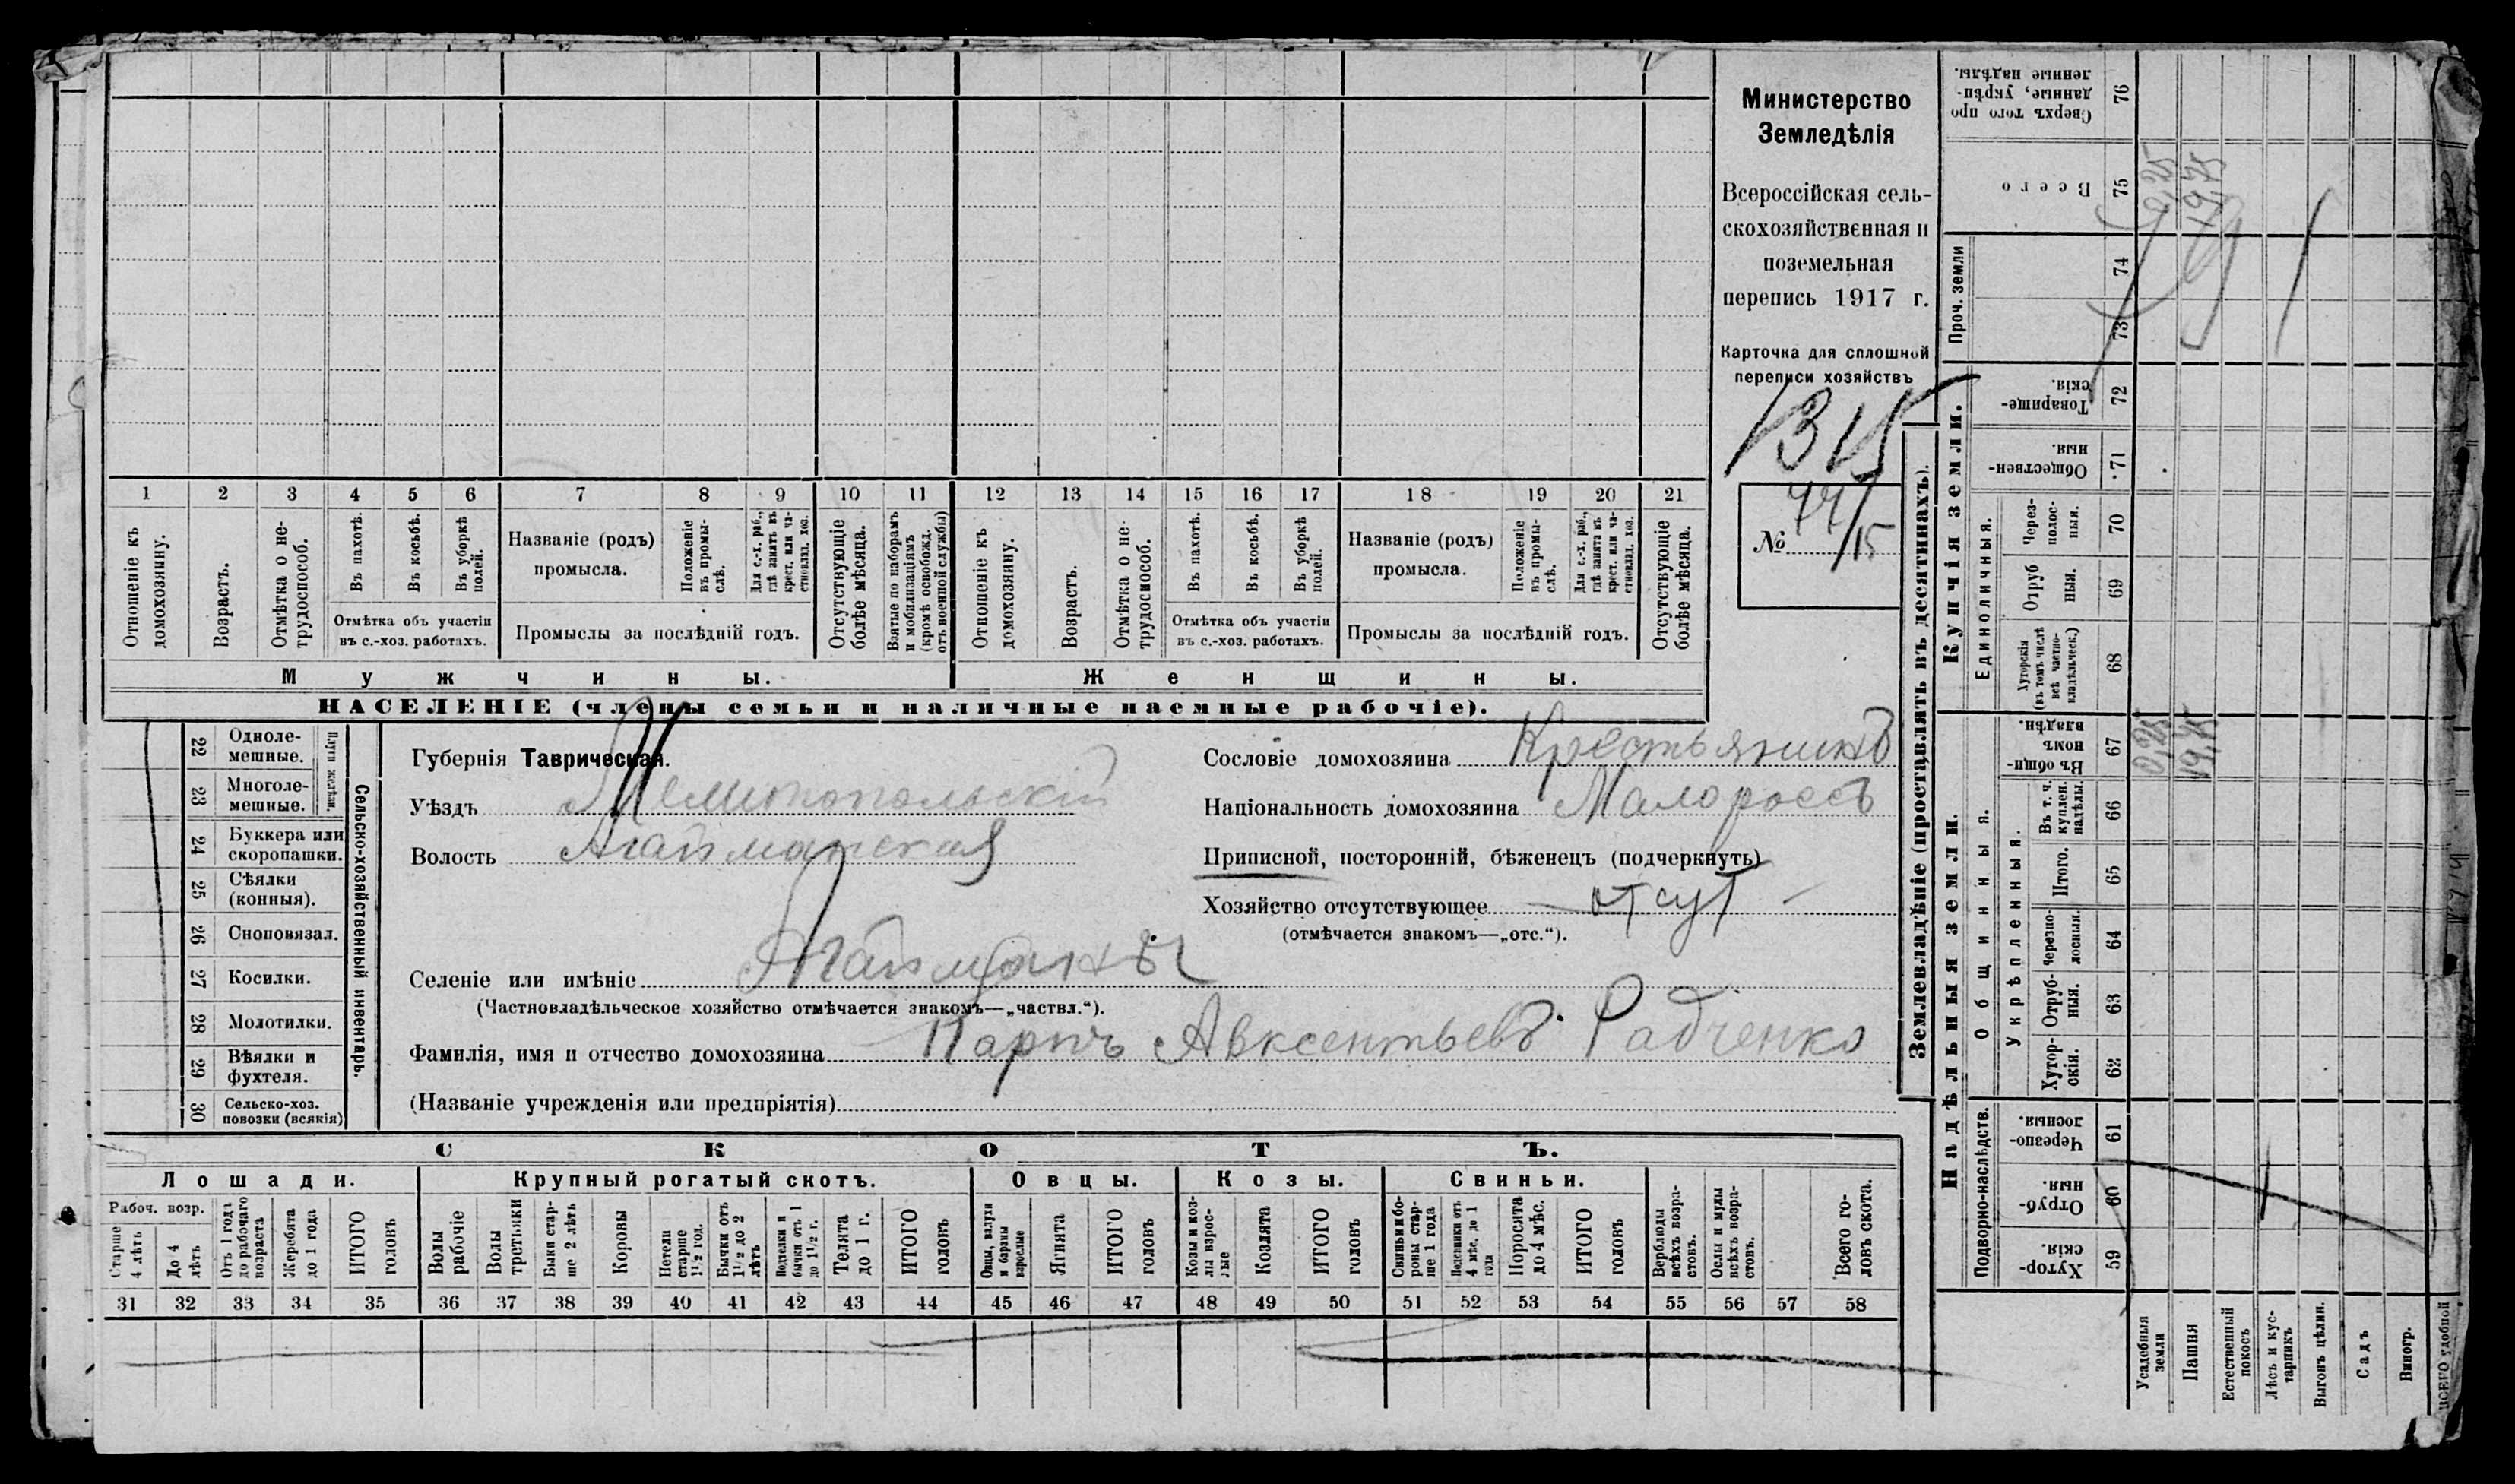 Министерство
Земледѣлія
Всероссійская сель-
скохозяйственная и
поземельная
перепись 1917 г.
Карточка для сплошной
переписи хозяйствъ
1315
№ 77/15
1 2 3 4 5 6 7 8 9 10 11 12 13 14 15 16 17 18 19 20 21
Отношеніе къ домохозяину.
Возрастъ.
Отмѣтка о не-трудоспособ.
Въ пахотѣ.
Въ косьбѣ.
Въ уборкѣ полей.
Отмѣтка объ участіи
въ с.-хоз. работахъ.
Названіе (родъ)
промысла.
Положеніе въ промы-слѣ.
Для с.-х. раб., гдѣ занятъ въ крест. или ча-стновлад. хоз.
Промыслы за послѣдній годъ.
Отсутствующіе болѣе мѣсяца.
Взятые по наборамъ и мобилизаціямъ (кромѣ освобожд. отъ военной службы)
Отношеніе къ домохозяину.
Возрастъ.
Отмѣтка о не-трудоспособ.
Въ пахотѣ.
Въ косьбѣ.
Въ уборкѣ полей.
Отмѣтка объ участіи
въ с.-хоз. работахъ.
Названіе (родъ)
промысла.
Положеніе въ промы-слѣ.
Для с.-х. раб., гдѣ занята въ крест. или ча-стновлад. хоз.
Промыслы за послѣдній годъ.
Отсутствующіе болѣе мѣсяца.
Мужчины.
Женщины.
НАСЕЛЕНІЕ (члены семьи и наличные наемные рабочіе).
22 Одноле-мешные.
23 Многоле-мешные.
Плуги желѣзн.
24 Буккера или скоропашки.
25 Сѣялки (конныя).
26 Сноповязал.
27 Косилки.
28 Молотилки.
29 Вѣялки и фухтеля.
30 Сельско-хоз. повозки (всякія)
Сельско-хозяйственный инвентарь.
Губернія Таврическая.
Уѣздъ Мелитопольскій
Волость Агайманская
Селеніе или имѣніе Агайманы
(Частновладѣльческое хозяйство отмѣчается знакомъ—„частвл.“).
Фамилія, имя и отчество домохозяина Карпъ Авксентьевъ Радченко
(Названіе учрежденія или предпріятія)
Сословіе домохозяина Крестьянинъ
Національность домохозяина Малороссъ
Приписной, посторонній, бѣженецъ (подчеркнуть)
Хозяйство отсутствующее отсут
(отмѣчается знакомъ—„отс.“).
СКОТЪ.
Лошади. Крупный рогатый скотъ. Овцы. Козы. Свиньи.
Рабоч. возр.
Старше 4 лѣтъ
До 4 лѣтъ
Отъ 1 года до рабочаго возраста
Жеребята до 1 года
ИТОГО головъ
Волы рабочіе
Волы третьяки
Быки стар-ше 2 лѣтъ
Коровы
Нетели старше 1½ год.
Бычки отъ 1½ до 2 лѣтъ
Подтелки и бычки отъ 1 до 1½ г.
Телята до 1 г.
ИТОГО головъ
Овцы, валухи и бараны взрослые
Ягнята
ИТОГО головъ
Козы и коз-лы взрос-лые
Козлята
ИТОГО головъ
Свиньи и бо-ровы стар-ше 1 года
Подсвинки отъ 4 мѣс. до 1 года
Поросята до 4 мѣс.
ИТОГО головъ
Верблюды всѣхъ возра-стовъ.
Ослы и мулы всѣхъ возра-стовъ.
Всего го-ловъ скота.
31 32 33 34 35 36 37 38 39 40 41 42 43 44 45 46 47 48 49 50 51 52 53 54 55 56 57 58
Землевладѣніе (проставлять въ десятинахъ).
Надѣльныя земли.
Купчія земли.
Проч. земли
Подворно-наслѣдств.
Общинныя.
Укрѣпленныя.
Единоличныя.
Хутор-скія. 59
Отруб-ныя. 60
Черезпо-лосныя 61
Хутор-скія. 62
Отруб-ныя. 63
Черезпо-лосныя. 64
Итого. 65
Въ т. ч. куплен. надѣлы. 66
Въ общи-номъ владѣн. 67
Хуторскія (въ томъ числѣ всѣ частно-владѣльческ.) 68
Отруб ныя. 69
Через-полос-ныя. 70
Обществен-ныя. 71
Товарище-скія. 72
73
74
Всего 75
Сверхъ того про данные, укрѣп-ленные надѣлы. 76
Усадебныя земли
0,25
0,25
Пашня
19,75
19,75
Естественный покосъ
Лѣсъ и кус-тарникъ
Выгонъ цѣлин.
Садъ
Виногр.
ВСЕГО удобной